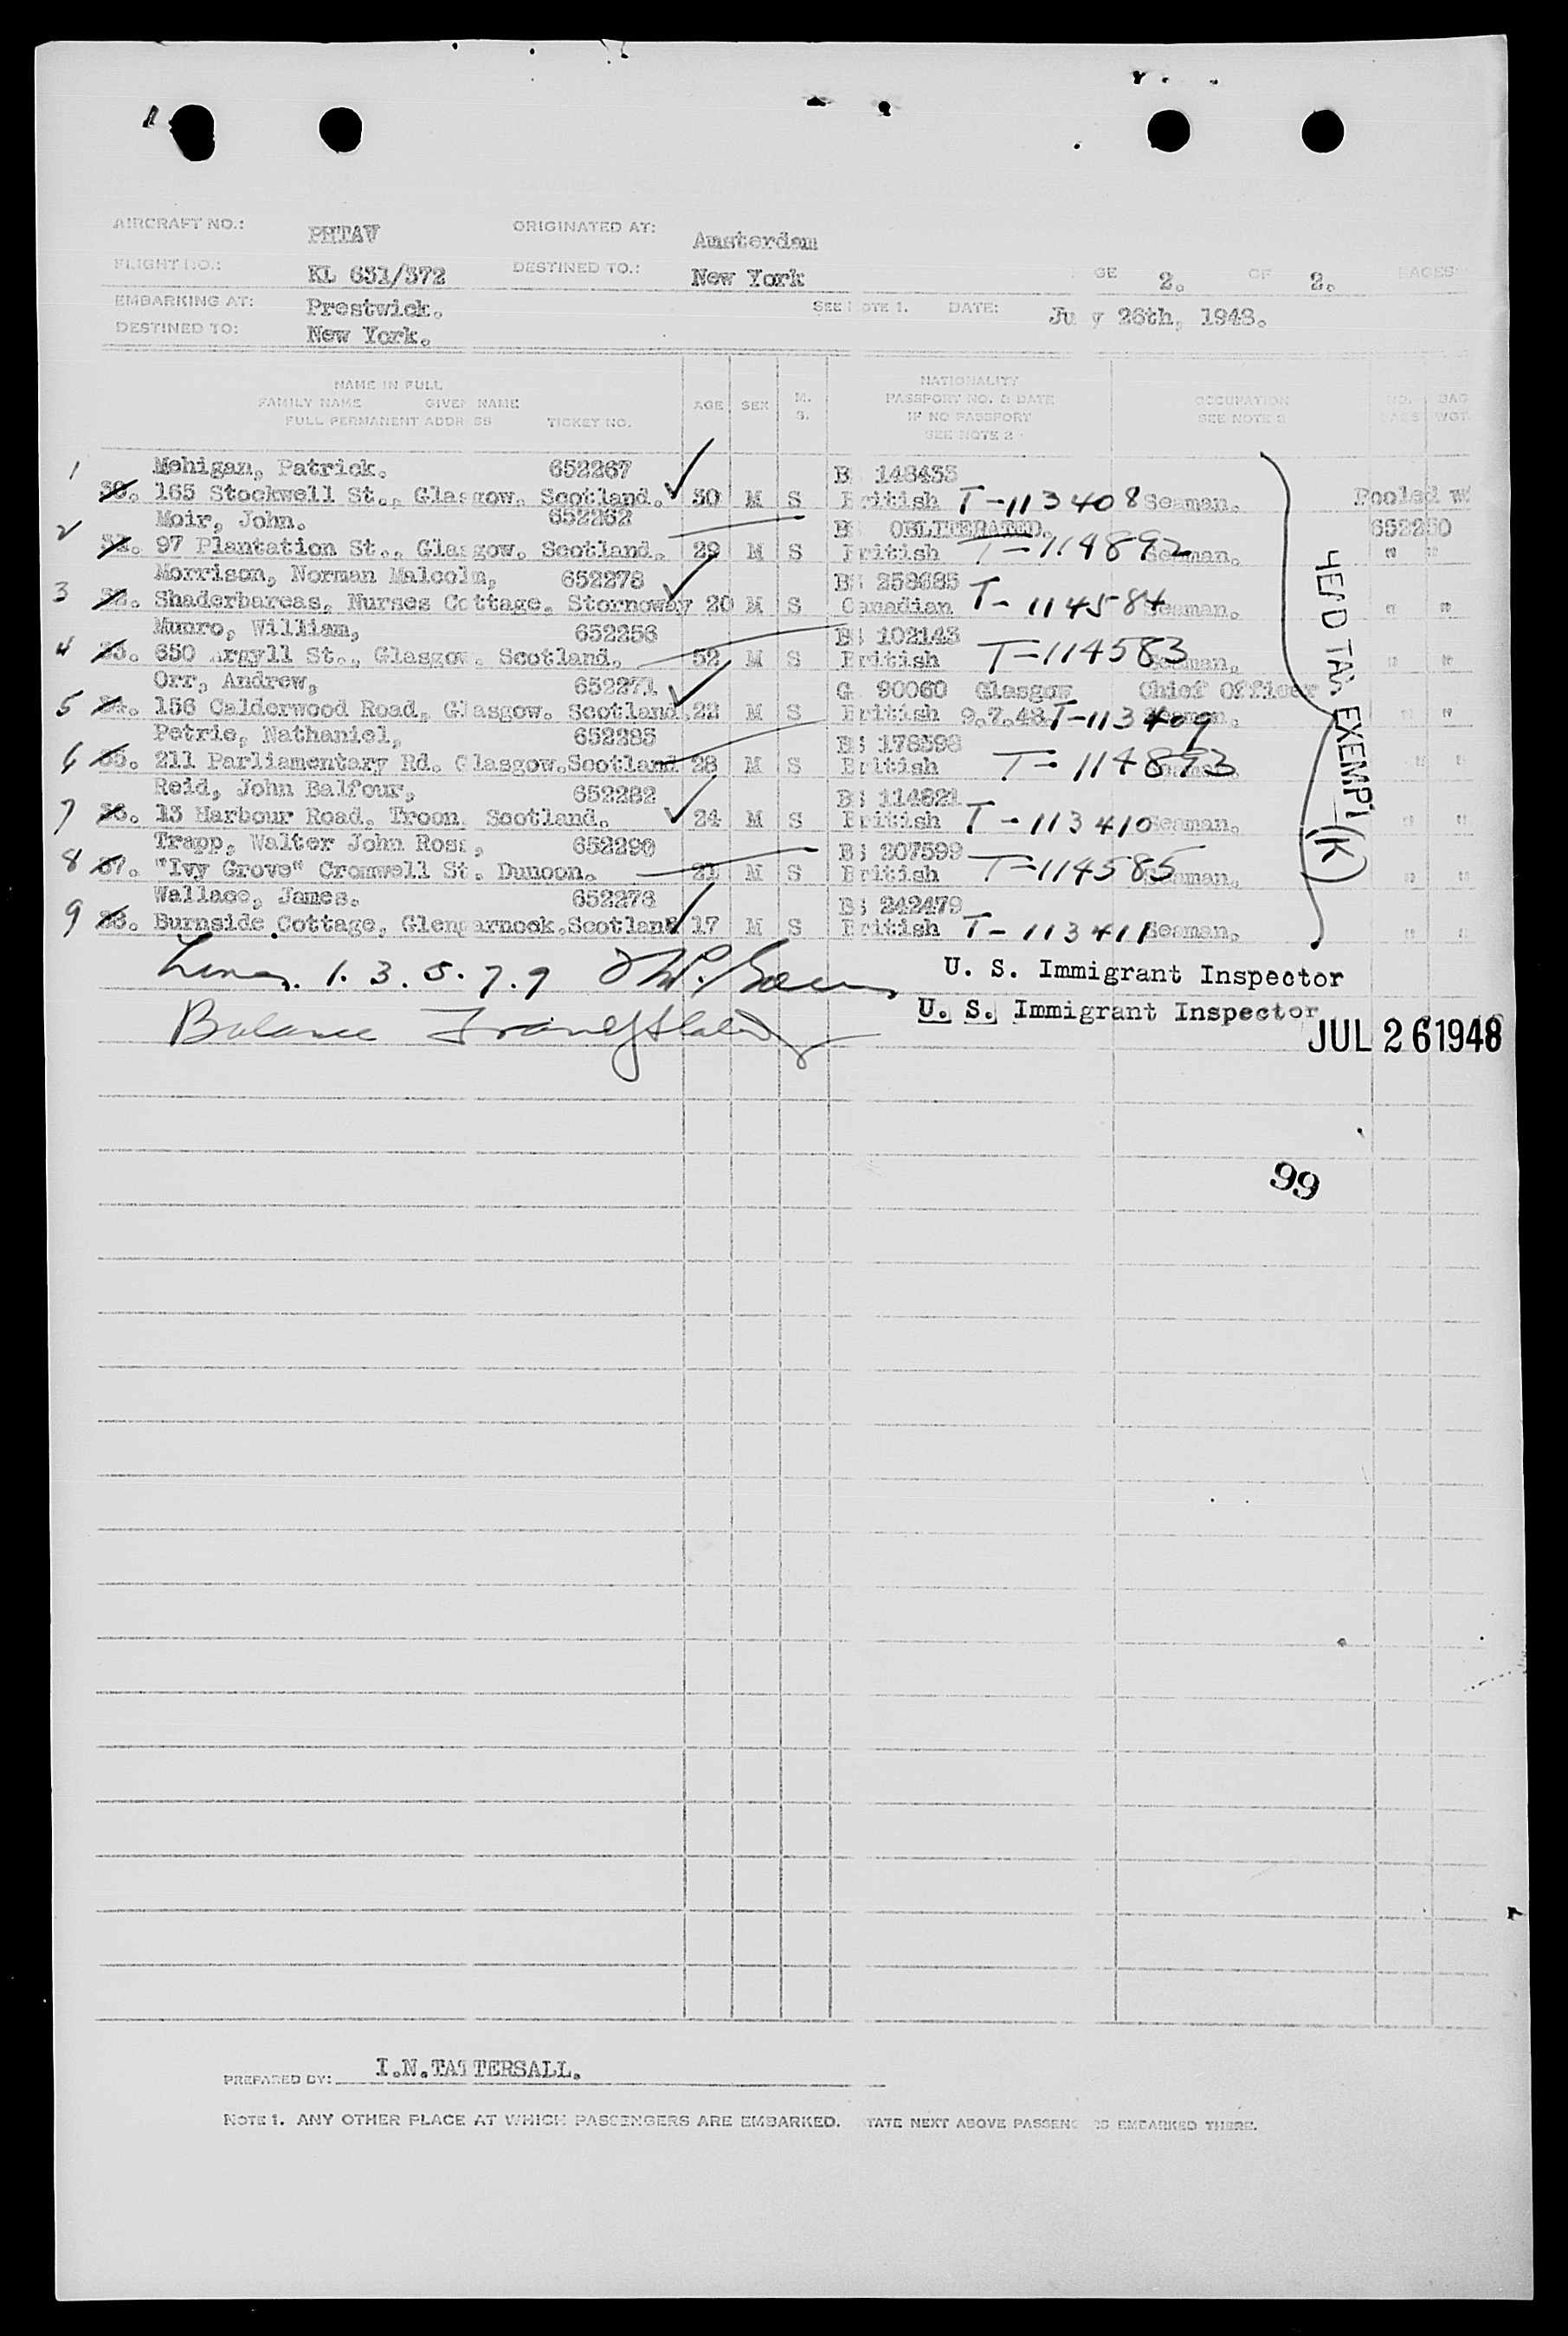 AIRCRAFT NO.: PHTAV ORIGINATED AT: Amsterdam
FLIGHT NO.: KL 631/572 DESTINED TO.: New York GE 2. OF 2. PAGES
EMBARKING AT: Prestwick. SEE NOTE 1. DATE: July 26th, 1948.
DESTINED TO: New York.
NAME IN FULL
FAMILY NAME GIVEN NAME
FULL PERMANENT ADDRESS TICKET NO. AGE SEX M. S. NATIONALITY PASSPORT NO. & DATE IF NO PASSPORT SEE NOTE 2 OCCUPATION SEE NOTE 2 NO. BAGS BAG WGT.
1 Mehigan, Patrick. 652267 B 148433
30. 165 Stockwell St., Glasgow. Scotland. 30 M S British T-113408 Seaman. Pooled w
2 Moir, John. 652262 B OBLITERATED. 652250
97 Plantation St., Glasgow. Scotland. 29 M S British T-114892 Seaman. " "
3 Morrison, Norman Malcolm, 652278 B 258685
Shaderbareas, Nurses Cottage. Stornoway 20 M S Canadian T-114584 Seaman. " "
4 Munro, William, 652256 B 102143
650 Argyll St., Glasgow. Scotland. 52 M S British T-114583 Seaman. " "
5 Orr, Andrew, 652271 G 90060 Glasgow Chief Officer
156 Calderwood Road, Glasgow. Scotland. 22 M S British 9.7.48. T-113409 " "
6 Petrie, Nathaniel, 652285 B 178598
35. 211 Parliamentary Rd. Glasgow. Scotland 28 M S British T-114893 " "
7 Reid, John Balfour, 652282 B 114821
36. 13 Harbour Road. Troon. Scotland. 24 M S British T-113410 Seaman. " "
8 Trapp, Walter John Ross, 652290 B 207599
37. "Ivy Grove" Cromwell St. Dunoon. 21 M S British T-114585 Seaman. " "
9 Wallace, James. 652278 B 242479
38. Burnside Cottage, Glengarnock. Scotland 17 M S British T-113411 Seaman. " "
HEAD TAX EXEMPT (K)
Lines. 1. 3. 5. 7. 9 U. S. Immigrant Inspector
Balance U. S. Immigrant Inspector
JUL 26 1948
99
PREPARED BY: I.N.TATTERSALL.
NOTE 1. ANY OTHER PLACE AT WHICH PASSENGERS ARE EMBARKED. STATE NEXT ABOVE PASSENGERS EMBARKED THERE.